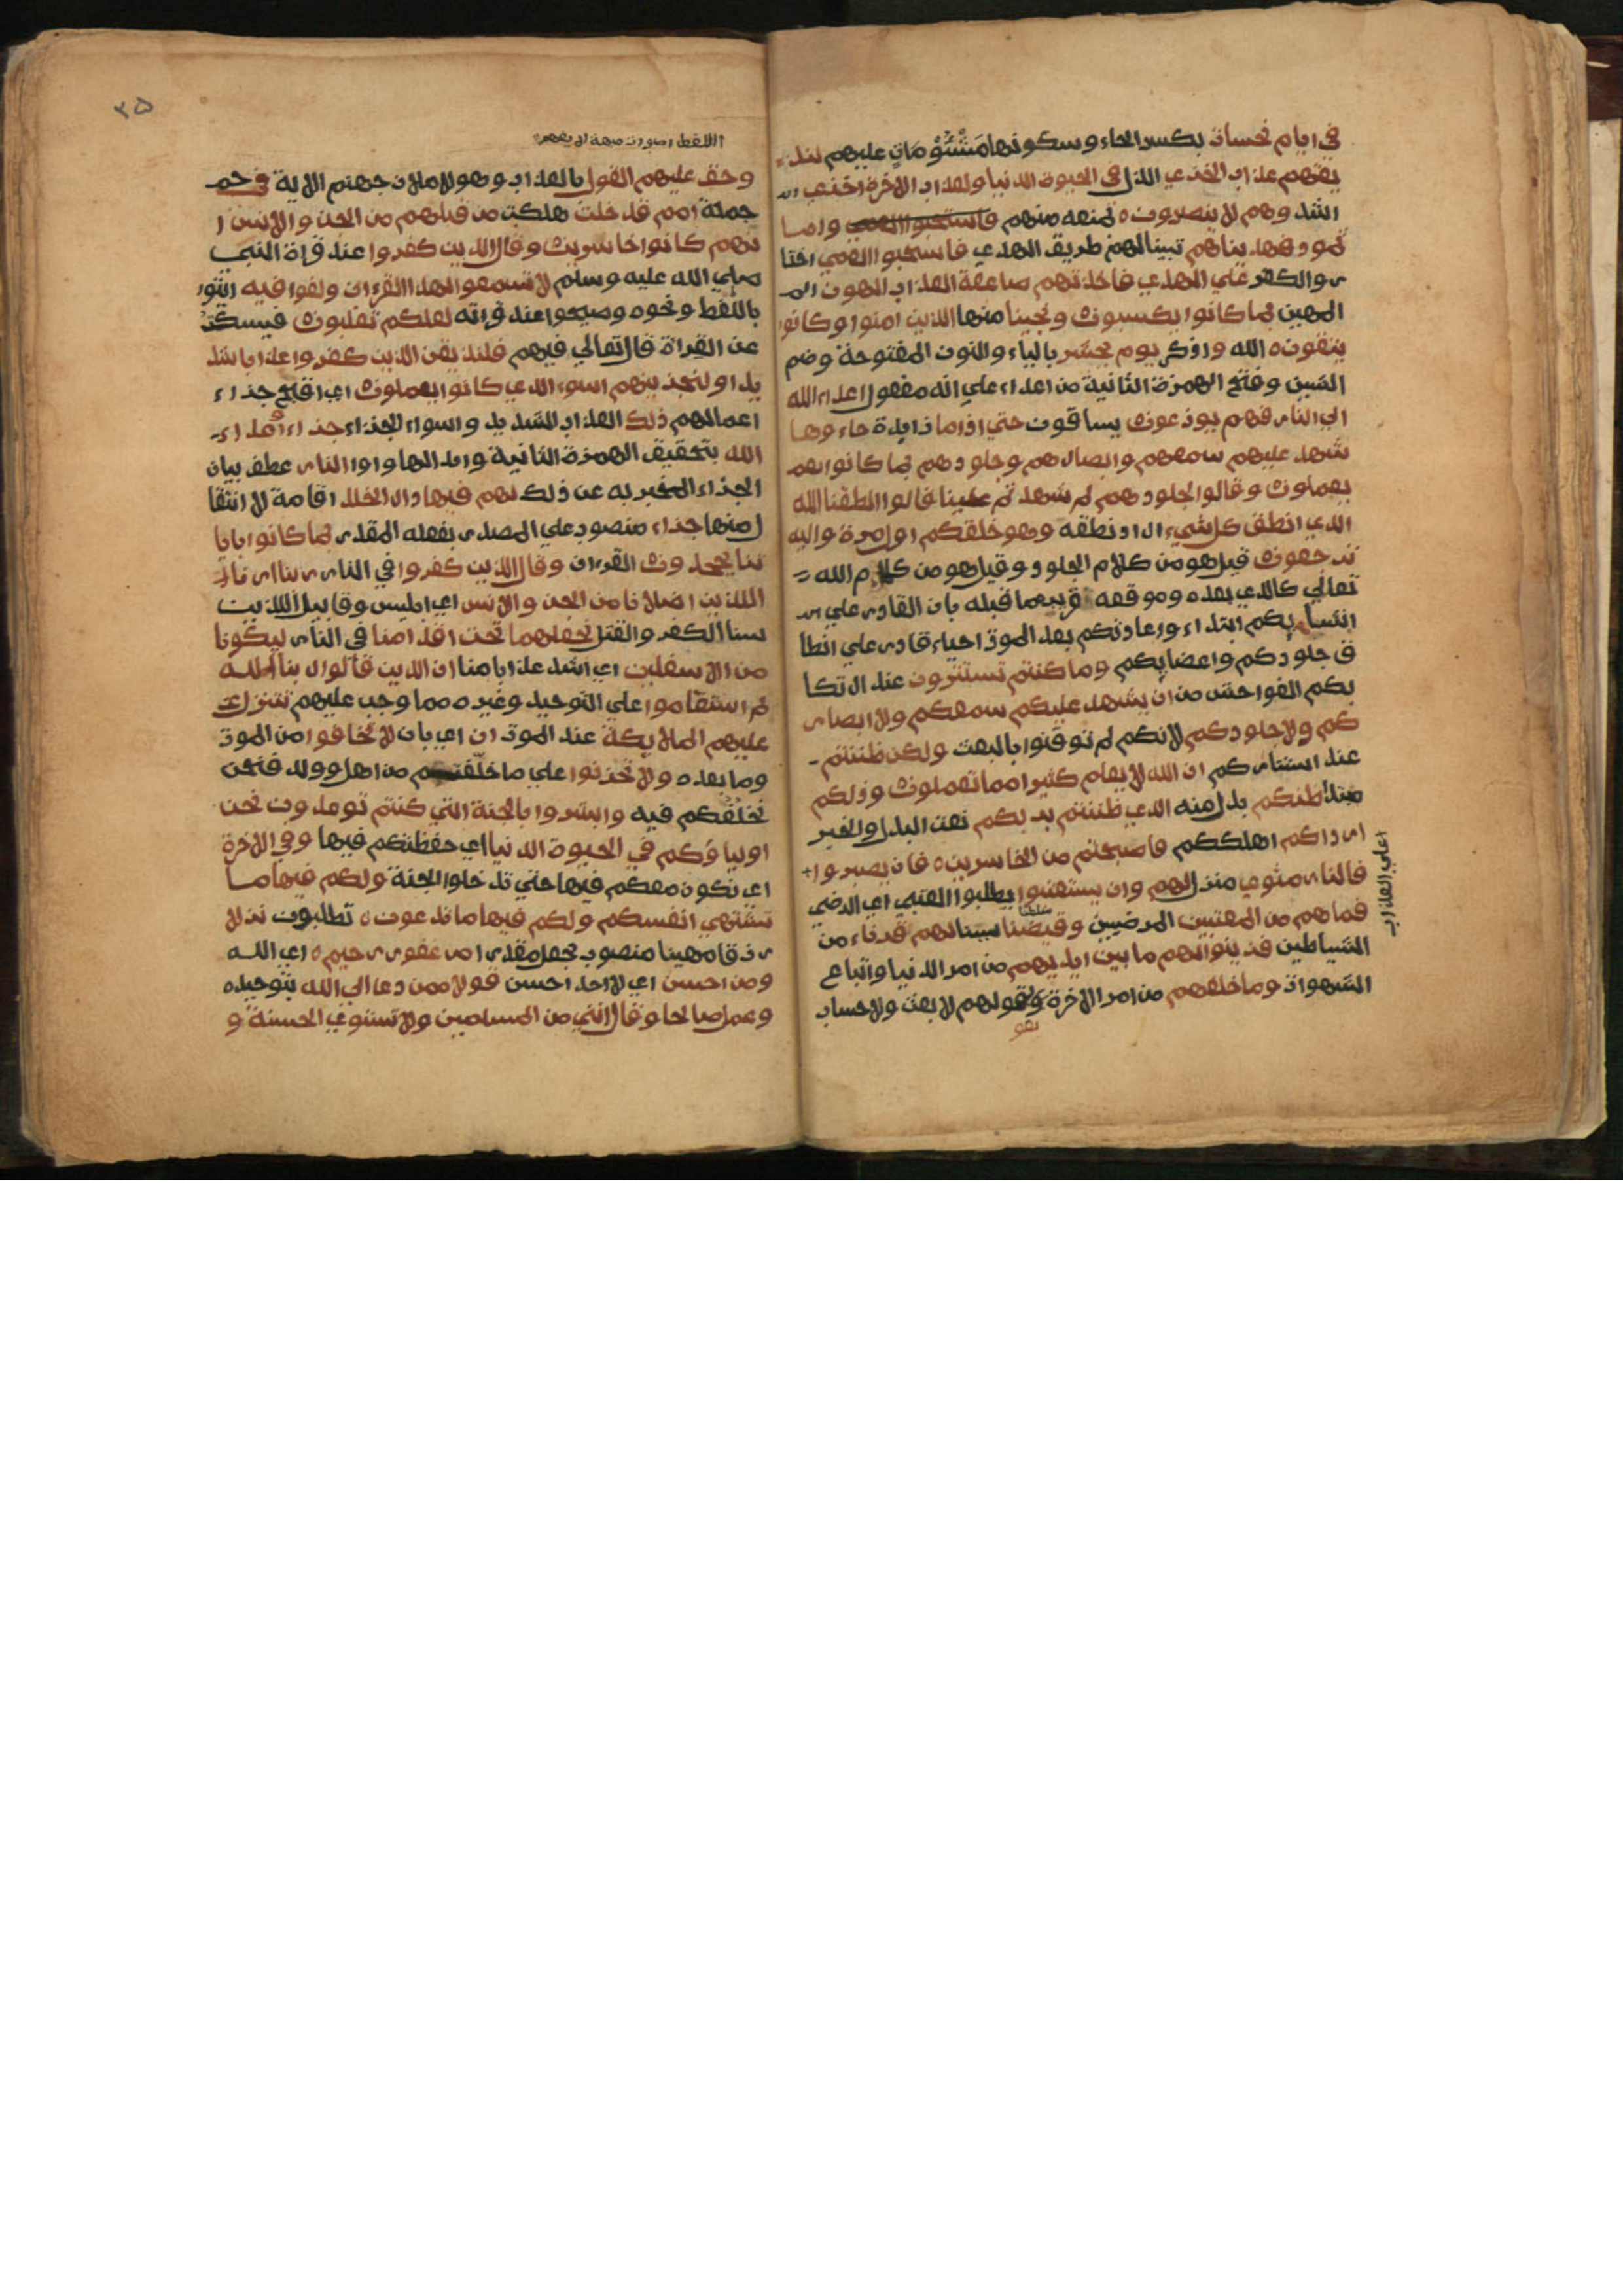 في ايام نحسات بكسر الحاء وسكونها مَشْئُوْمَاتٍ عليهم لنذ
يقنهم عذاب الخزي الذل في الحيوة الدنيا ولعذاب الاخرة اخزي
اشد وهم لا ينصرون بمنعه منهم فاستحبوا العمي واما
ثمود فهدیناهم تبينا لهم طريق الهدي فاستحبوا العمي اختا
روالكفر علي الهدي فاخذتهم صاعقة العذاب الهون الم
المهين بما كانوا يكسبون ونجينا منها الذين امنوا وكانوا
يتقون الله واذكر يوم يحشر بالياء والنون المفتوحة وضم
الشين وفتح الهمزة الثانية من اعداء علي انه مفعول اعداء الله
الي النار فهم يوزعون يساقون حتي اذا ما زايدة جاءوها
شهد عليهم سمعهم وابصارهم وجلودهم بما كانوا يعم
يعملون وقالوا لجلودهم لم شهدتم علينا قالوا انطقنا الله
الذي انطق كل شيء اراد نطقه وهو خلقكم اول مرة واليه
ترجعون قيل هو من كلام الجلود وقيل هو من كلام الله
تعالي كالذي بعده وموقعه قريب مما قبله بان القادر علي
انشايكم ابتداء واعادتكم بعد الموت احياء قادر علي انطا
ق جلودكم واعضايكم وما كنتم تستترون عند ارتكا
بكم الفواحش من ان يشهد عليكم سمعكم ولا ابصار
كم ولا جلودكم لانكم لم توقنوا بالبعث ولكن ظننتم
عند استتاركم ان الله لا يعلم كثيرا مما تعملون وذلكم
مبتدا ظنكم بدل منه الذي ظننتم بربكم نعت البدل والخبر
ارداكم اهلككم فاصبحتم من الخاسرين فان يصبروا
علي العذاب
فالنار مثوي منزل لهم وان يستعتبوا يطلبوا العتبي اي الرضي
فماهم من المعتبين المرضيين وقيضنا سببنا لهم قرناء من
الشياطين فزينوا لهم ما بين ايديهم من امر الدنيا واتباع
الشهوات وما خلفهم من امر الاخرة بقولهم لا بعث ولا حساب
وحق عليهم القول بالعذاب وهو لاملان جهنم الاية في
جملة امم قد خلت هلكت من قبلهم من الجن والانس ا
نهم كانوا خاسرين وقال الذين كفروا عند قراة النبي
صلي الله عليه وسلم لا تسمعوا لهذا القران والغوا فيه ايتو
باللغط ونحوه وصيحوا عند قراته لعلكم تغلبون فيسكت
عن القراة قال تعالي فيهم فلنذيقن الذين كفروا عذابا شد
يدا ولنجزينهم اسوء الذي كانوا يعملون اي اقبح جزاء
اعمالهم ذلك العذاب الشديد واسواء الجزاء جزاء اعداء
الله بتحقيق الهمزة الثانية وابدالها واوا النار عطف بيان
الجزاء المخبر به عن ذلك لهم فيها دار الخلد اقامة لا انتقا
ل منها جزاء منصوب علي المصدر بفعله المقدر بما كانوا باياتنا
يجحدون القران وقال الذين كفروا في النار ربنا ارنا
اللذين اضلانا من الجن والانس اي ابليس وقابيل اللذين
سنا الكفر والقتل نجعلهما تحت اقدامنا في النار ليكونا
من الاسفلين اي اشد عذابا منا ان الذين قالوا ربنا الله
ثم استقاموا علي التوحيد وغيره مما وجب عليهم تتنزل
عليهم الملايكة عند الموت ان اي بان لا تخافوا من الموت
وما بعده ولا تحزنوا علي ما خلفتم من اهل وولد فنحن
نخلفكم فيه وابشروا بالجنة التي كنتم توعدون نحن
اولياؤكم في الحيوة الدنيا اي حفظتكم فيها وفي الاخرة
اي نكون معكم فيها حتي تدخلوا الجنة ولكم فيها ما
تشتهي انفسكم ولكم فيها ما تدعون تطلبون نزلا
رزقا مهيئا منصوب بجعل مقدرا من غفور رحيم اي الله
ومن احسن اي لا احد احسن قولا ممن دعا الي الله بتوحيده
وعمل صالحا وقال انني من المسلمين ولا تستوي الحسنة و